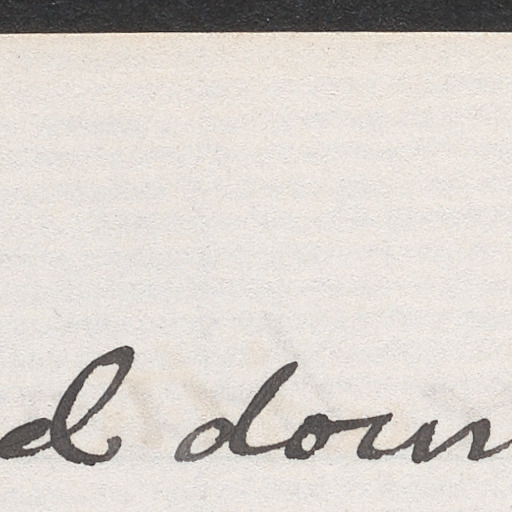 d down